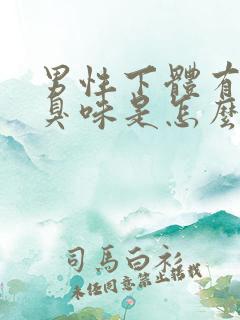 男性下體有
臭味是怎麼
司馬白衫
未經同意禁止轉載